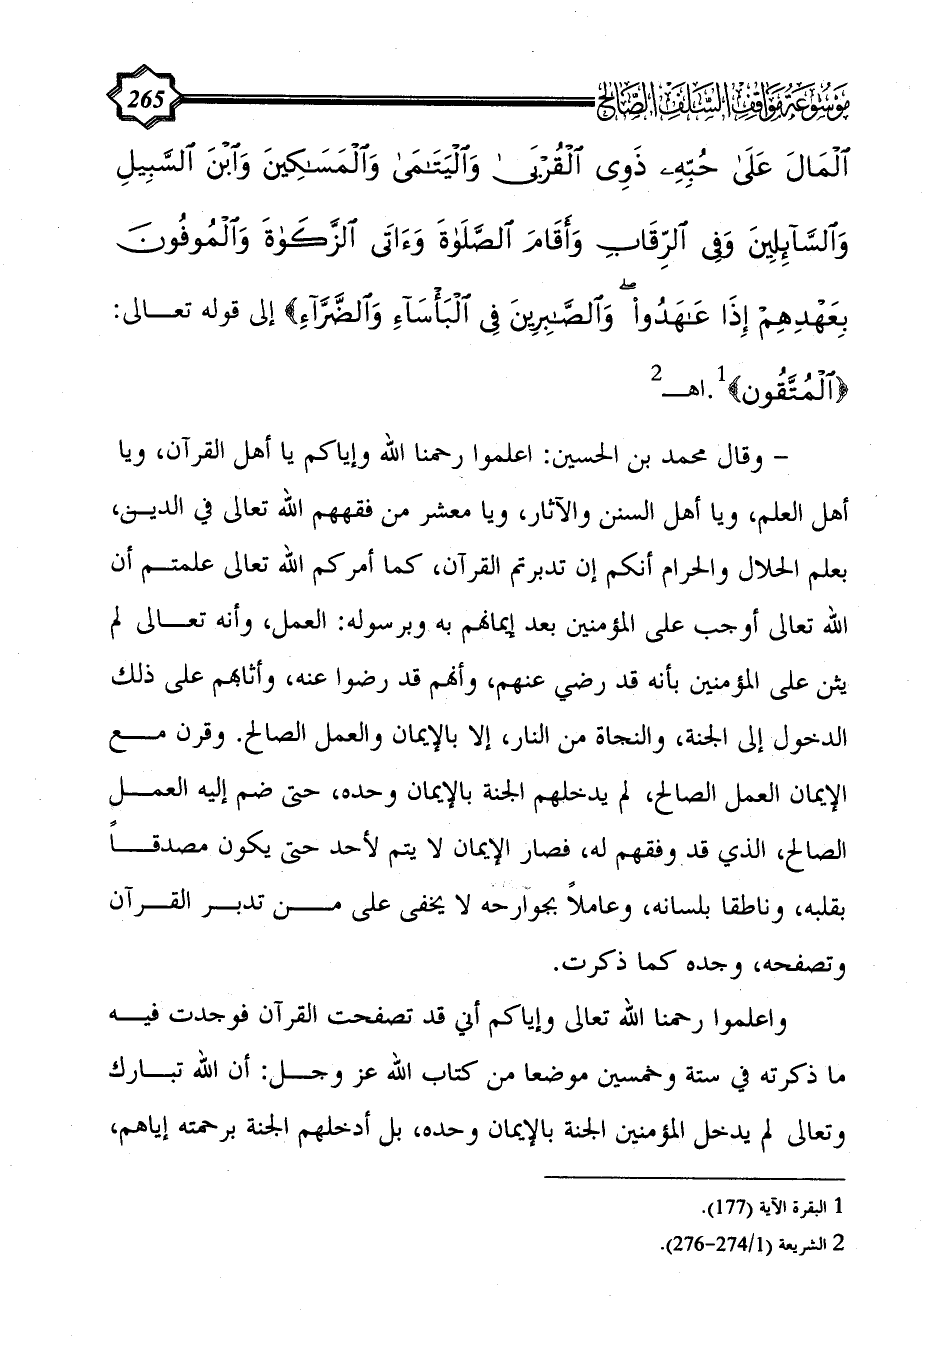 موسوعة مواقف السلف الصالح 265
ٱلْمَالَ عَلَىٰ حُبِّهِۦ ذَوِى ٱلْقُرْبَىٰ وَٱلْيَتَـٰمَىٰ وَٱلْمَسَـٰكِينَ وَٱبْنَ ٱلسَّبِيلِ
وَٱلسَّآئِلِينَ وَفِى ٱلرِّقَابِ وَأَقَامَ ٱلصَّلَوٰةَ وَءَاتَى ٱلزَّكَوٰةَ وَٱلْمُوفُونَ
بِعَهْدِهِمْ إِذَا عَـٰهَدُوا۟ ۖ وَٱلصَّـٰبِرِينَ فِى ٱلْبَأْسَآءِ وَٱلضَّرَّآءِ﴾ إلى قوله تعـــالى:
﴿ٱلْمُتَّقُون﴾1.اهـــ2
– وقال محمد بن الحسين: اعلموا رحمنا الله وإياكم يا أهل القرآن، ويا
أهل العلم، ويا أهل السنن والآثار، ويا معشر من فقههم الله تعالى في الديـــن،
بعلم الحلال والحرام أنكم إن تدبرتم القرآن، كما أمركم الله تعالى علمتـــم أن
الله تعالى أوجب على المؤمنين بعد إيمانهم به وبرسوله: العمل، وأنه تعـــالى لم
يثن على المؤمنين بأنه قد رضي عنهم، وأنهم قد رضوا عنه، وأثابهم على ذلك
الدخول إلى الجنة، والنجاة من النار، إلا بالإيمان والعمل الصالح. وقرن مـــع
الإيمان العمل الصالح، لم يدخلهم الجنة بالإيمان وحده، حتى ضم إليه العمـــل
الصالح، الذي قد وفقهم له، فصار الإيمان لا يتم لأحد حتى يكون مصدقـــاً
بقلبه، وناطقا بلسانه، وعاملاً بجوارحه لا يخفى على مـــن تدبـــر القـــرآن
وتصفحه، وجده كما ذكرت.
واعلموا رحمنا الله تعالى وإياكم أني قد تصفحت القرآن فوجدت فيـــه
ما ذكرته في ستة وخمسين موضعا من كتاب الله عز وجـــل: أن الله تبـــارك
وتعالى لم يدخل المؤمنين الجنة بالإيمان وحده، بل أدخلهم الجنة برحمته إياهم،
1 البقرة الآية (177).
2 الشريعة (1/274-276).